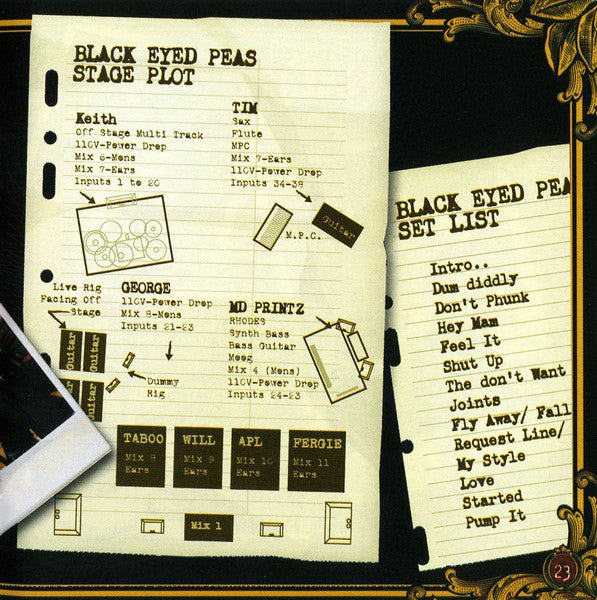 BLACK EYED PEAS
STAGE PLOT
Keith
Off Stage Multi Track
110V-Power Drop
Mix 6-Mons
Mix 7-Ears
Inputs 1 to 20
TIM
Sax
Flute
MPC
Mix 7-Ears
110V-Power Drop
Inputs 34-38
Guitar
M.P.C.
Live Rig
Facing Off
Stage
GEORGE
110V-Power Drop
Mix 8-Mons
Inputs 21-23
MD PRINTZ
RHODES
Synth Bass
Bass Guitar
Moog
Mix 4 (Mons)
110V-Power Drop
Inputs 24-23
Guitar
Guitar
Guitar
Dummy
Rig
TABOO
Mix 8
Ears
WILL
Mix 9
Ears
APL
Mix 10
Ears
FERGIE
Mix 11
Ears
Mix 1
BLACK EYED PEA
SET LIST
Intro..
Dum diddly
Don't Phunk
Hey Mam
Feel It
Shut Up
The don't Want
Joints
Fly Away/ Fall
Request Line/
My Style
Love
Started
Pump It
23